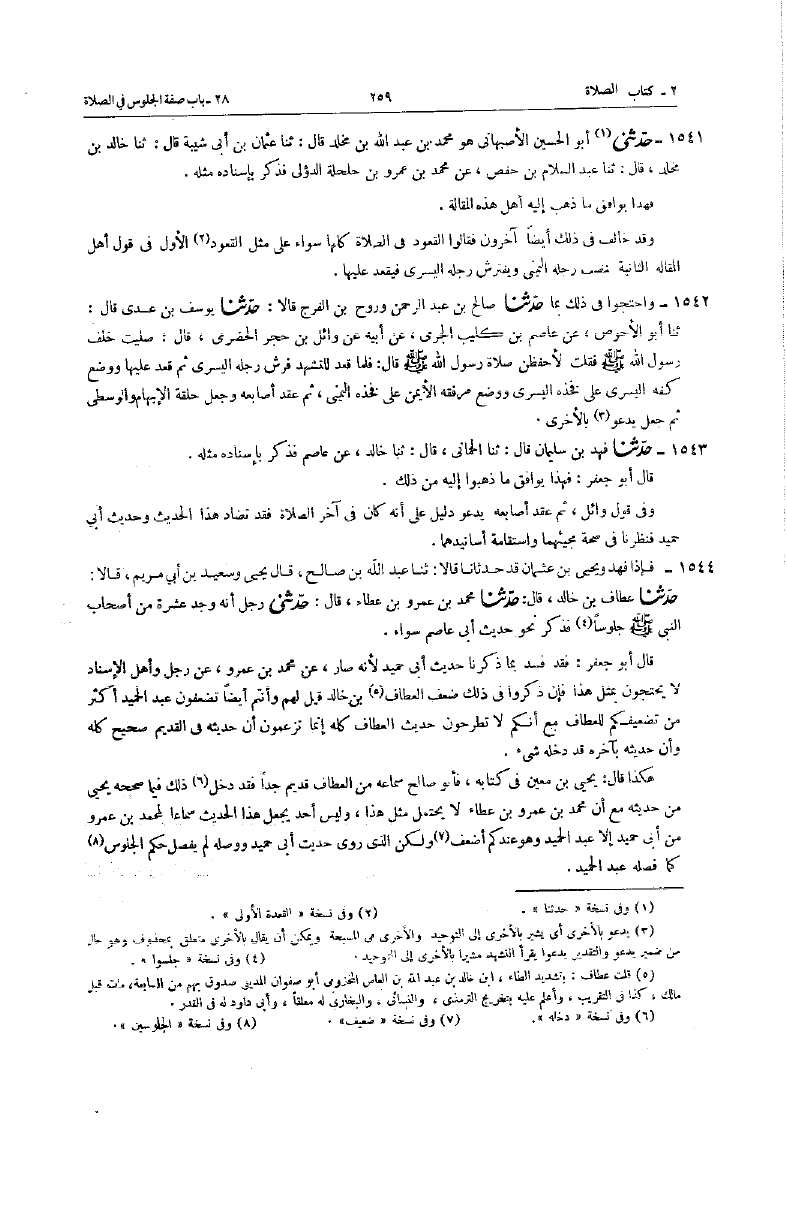 ٢ - كتاب الصلاة ٢٥٩ ٢٨ - باب صفة الجلوس في الصلاة
١٥٤١ - حدّثني (١) أبو الحسين الأصبهانى هو محمد بن عبد الله بن مخلد قال : ثنا عثمان بن أبى شيبة قال : ثنا خالد بن
مخلد ، قال : ثنا عبد السلام بن حفص ، عن محمد بن عمرو بن حلحلة الدؤلى فذكر بإسناده مثله .
فهذا يوافق ما ذهب إليه أهل هذه المقالة .
وقد خالف فى ذلك أيضاً آخرون فقالوا القعود فى الصلاة كلها سواء على مثل القعود(٢) الأول فى قول أهل
المقاله الثانية ينصب رجله اليمنى ويفترش رجله اليسرى فيقعد عليها .
١٥٤٢ - واحتجوا فى ذلك بما حدّثنا صالح بن عبد الرحمن وروح بن الفرج قالا : حدّثنا يوسف بن عدى قال :
ثنا أبو الأحوص ، عن عاصم بن كليب الجرمى ، عن أبيه عن وائل بن حجر الحضرمى ، قال : صليت خلف
رسول الله ﷺ فقلت لأحفظن صلاة رسول الله ﷺ قال: فلما قعد للتشهد فرش رجله اليسرى ثم قعد عليها ووضع
كفه اليسرى على فخذه اليسرى ووضع مرفقه الأيمن على فخذه اليمنى ، ثم عقد أصابعه وجعل حلقة الإبهام والوسطى
ثم جعل يدعو(٣) بالأخرى .
١٥٤٣ - حدّثنا فهد بن سليمان قال : ثنا الحمانى ، قال : ثنا خالد ، عن عاصم فذكر بإسناده مثله .
قال أبو جعفر : فهذا يوافق ما ذهبوا إليه من ذلك .
وفى قول وائل ، ثم عقد أصابعه يدعو دليل على أنه كان فى آخر الصلاة فقد تضاد هذا الحديث وحديث أبي
حميد فنظرنا فى صحة مجيئهما واستقامة أسانيدهما .
١٥٤٤ - فإذا فهد ويحيى بن عثمان قد حدثانا قالا: ثنا عبد الله بن صالح ، قال يحيى وسعيد بن أبي مريم ، قالا :
حدّثنا عطاف بن خالد ، قال: حدّثنا محمد بن عمرو بن عطاء ، قال : حدّثني رجل أنه وجد عشرة من أصحاب
النبي ﷺ جلوساً(٤) فذكر نحو حديث أبى عاصم سواء .
قال أبو جعفر : فقد فسد بما ذكرنا حديث أبى حميد لأنه صار ، عن محمد بن عمرو ، عن رجل وأهل الإسناد
لا يحتجون بمثل هذا فإن ذكروا فى ذلك ضعف العطاف(٥) بن خالد قيل لهم وأنتم أيضاً تضعفون عبد الحميد أكثر
من تضعيفكم للعطاف مع أنكم لا تطرحون حديث العطاف كله إنما تزعمون أن حديثه فى القديم صحيح كله
وأن حديثه بآخره قد دخله شىء .
هكذا قال: يحيى بن معين فى كتابه ، فأبو صالح سماعه من العطاف قديم جداً فقد دخل(٦) ذلك فيما صححه يحيى
من حديثه مع أن محمد بن عمرو بن عطاء لا يحتمل مثل هذا ، وليس أحد يجعل هذا الحديث سماعا لمحمد بن عمرو
من أبى حميد إلا عبد الحميد وهو عندكم أضعف(٧) ولكن الذى روى حديث أبى حميد ووصله لم يفصل حكم الجلوس(٨)
كما فصله عبد الحميد .
(١) وفى نسخة « حدثنا » . (٢) وفى نسخة « القعدة الأولى » .
(٣) يدعو بالأخرى أى يشير بالأخرى إلى التوحيد والأخرى هى المسبحة ويمكن أن يقال بالأخرى متعلق بمحذوف وهو حال
من ضمير يدعو والتقدير يدعوا يقرأ التشهد مشيرا بالأخرى إلى التوحيد . (٤) وفى نسخة « جلسوا » .
(٥) قلت عطاف : وتشديد الطاء ، ابن خالد بن عبد الله بن العاص المخزومى أبو صفوان المدينى صدوق يهم من السابعة، مات قبل
مالك ، كذا فى التقريب ، وأعلم عليه بتخريج الترمذى ، والنسائى ، والبخارى له معلقاً ، وأبى داود له فى القدر .
(٦) وفى نسخة « دخله ». (٧) وفى نسخة « ضعيف» . (٨) وفى نسخة « الجلوسين ».